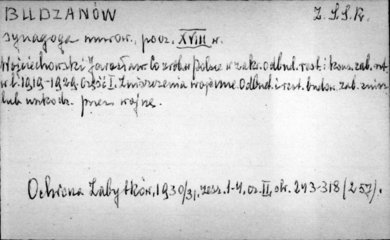 BUDZANÓW Z.S.S.R.
synagoga murow., pocz. XVIII w.
Wojciechowski Jarosław. Co zrobiła Polska w zakr. odbud. rest. i kons. zab. szt.
w l. 1919-1929. Część I. Zniszczenia wojenne. Odbud. i rest. budow. zab. zniszcz.
lub uszkodz. przez wojnę.
Ochrona Zabytków, 1930/31, zesz. 1-4, cz. II, str. 243-318 (257).